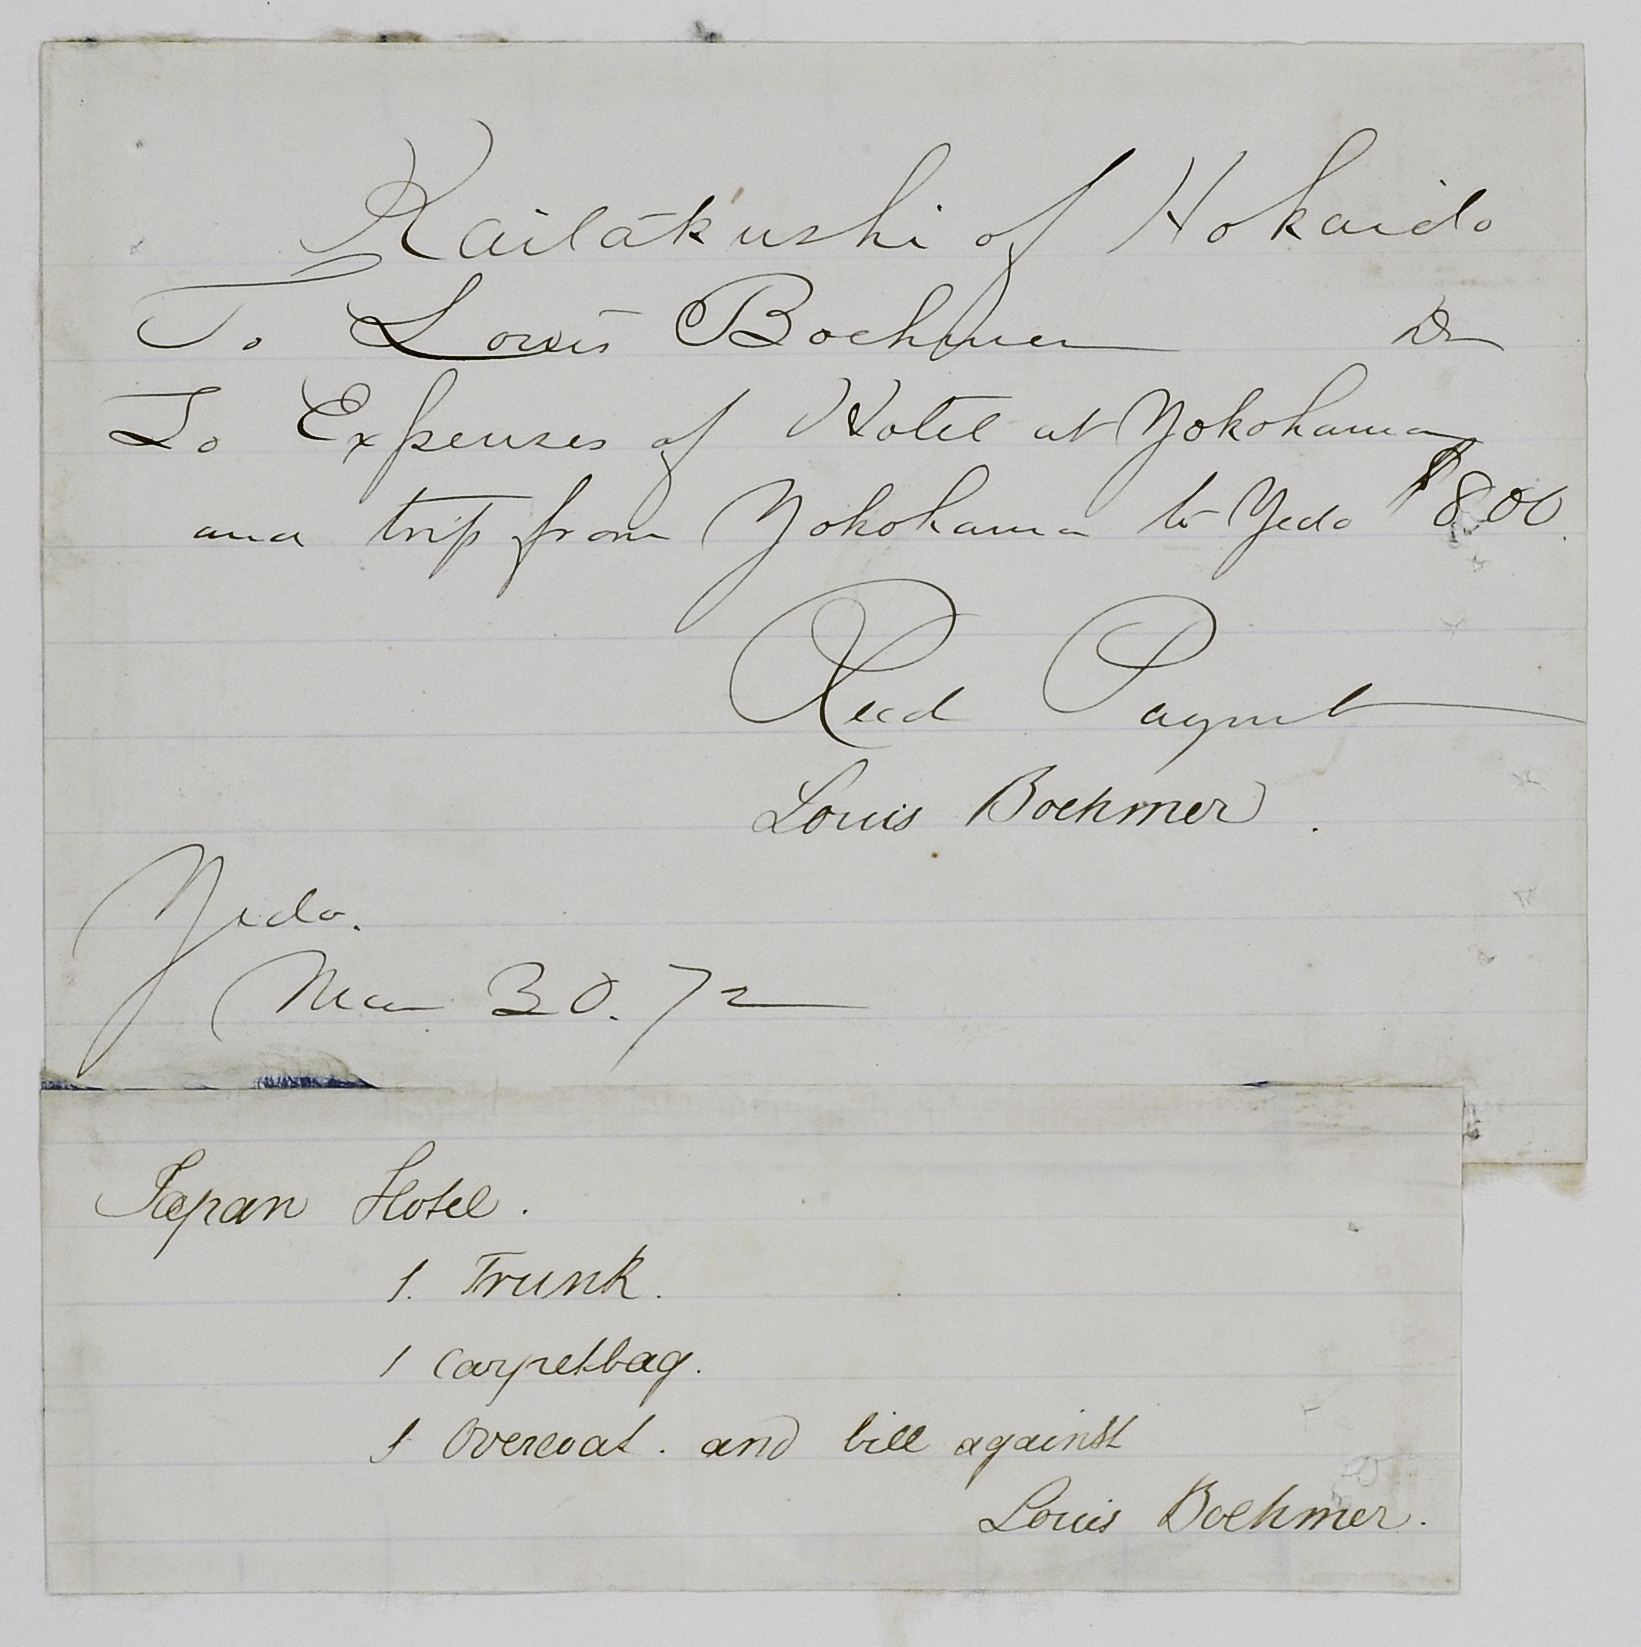 Kaitakushi of Hokaido
To Louis Boehmer Dr
To Expenses of Hotel at Yokohama
and trip from Yokohama to Yedo $8.00
Recd Paymt
Louis Boehmer.
Yedo.
Mar 30. 72
Japan Hotel.
1. Trunk.
1 Carpetbag.
1 Overcoat. and bill against
Louis Boehmer.